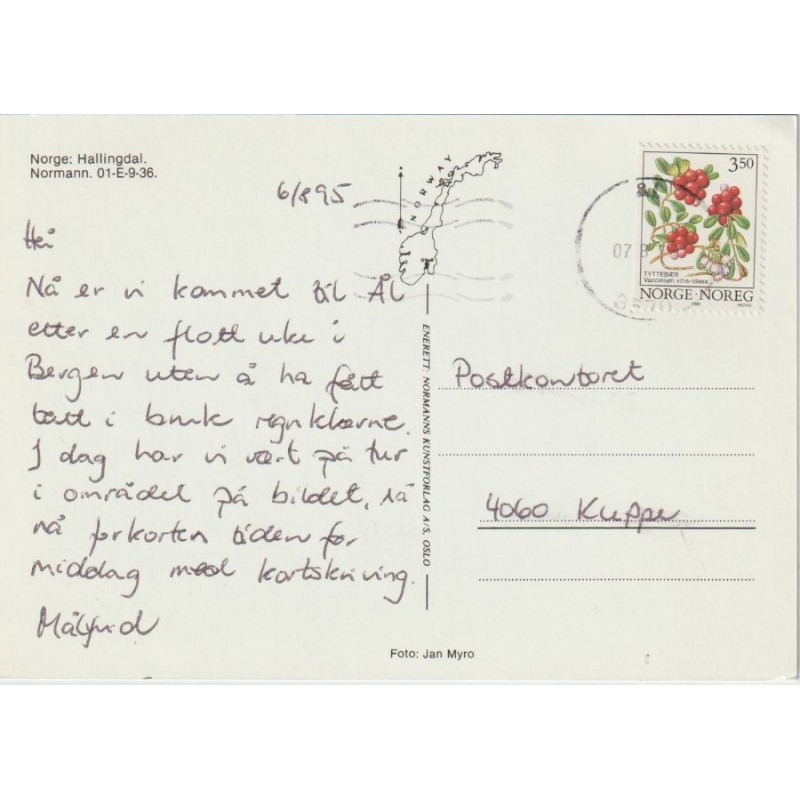 Norge: Hallingdal.
Normann. 01-E-9-36.
6/8 95
NORWAY
3.50
TYTTEBÆR
Vaccinium vitis-idaea
NORGE·NOREG
07 8
Hei
Nå er vi kommet til Ål
etter en flott uke i
Bergen uten å ha fått
tatt i bruk regnklærne.
I dag har vi vært på tur
i området på bildet, så
nå forkorten tiden før
middag med kortskriving.
Målfrid
ENERETT: NORMANNS KUNSTFORLAG A/S, OSLO
Postkontoret
4060 Kleppe
Foto: Jan Myro